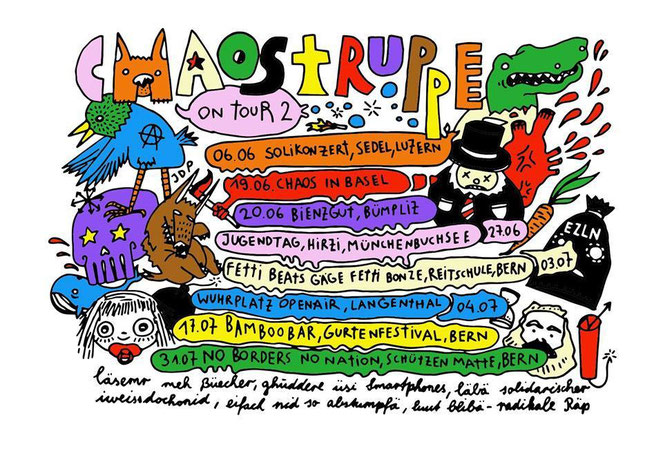 CHAOSTRUPPE
ON TOUR 2
JDP
06.06 SOLIKONZERT, SEDEL, LUZERN
19.06. CHAOS IN BASEL
20.06 BIENZGUT, BÜMPLIZ
JUGENDTAG, HIRZI, MÜNCHENBUCHSEE 27.06
EZLN
FETTI BEATS GÄGE FETTI BONZE, REITSCHULE, BERN 03.07
WUHRPLATZ OPENAIR, LANGENTHAL 04.07
17.07 BAMBOO BAR, GURTENFESTIVAL, BERN
31.07 NO BORDERS NO NATION, SCHÜTZEN MATTE, BERN
läsemr meh Büecher, ghüddere üsi Smartphones, läbä solidarischer
iweissdochonid, eifach nid so abstumpfä, luut blibä - radikale Räp